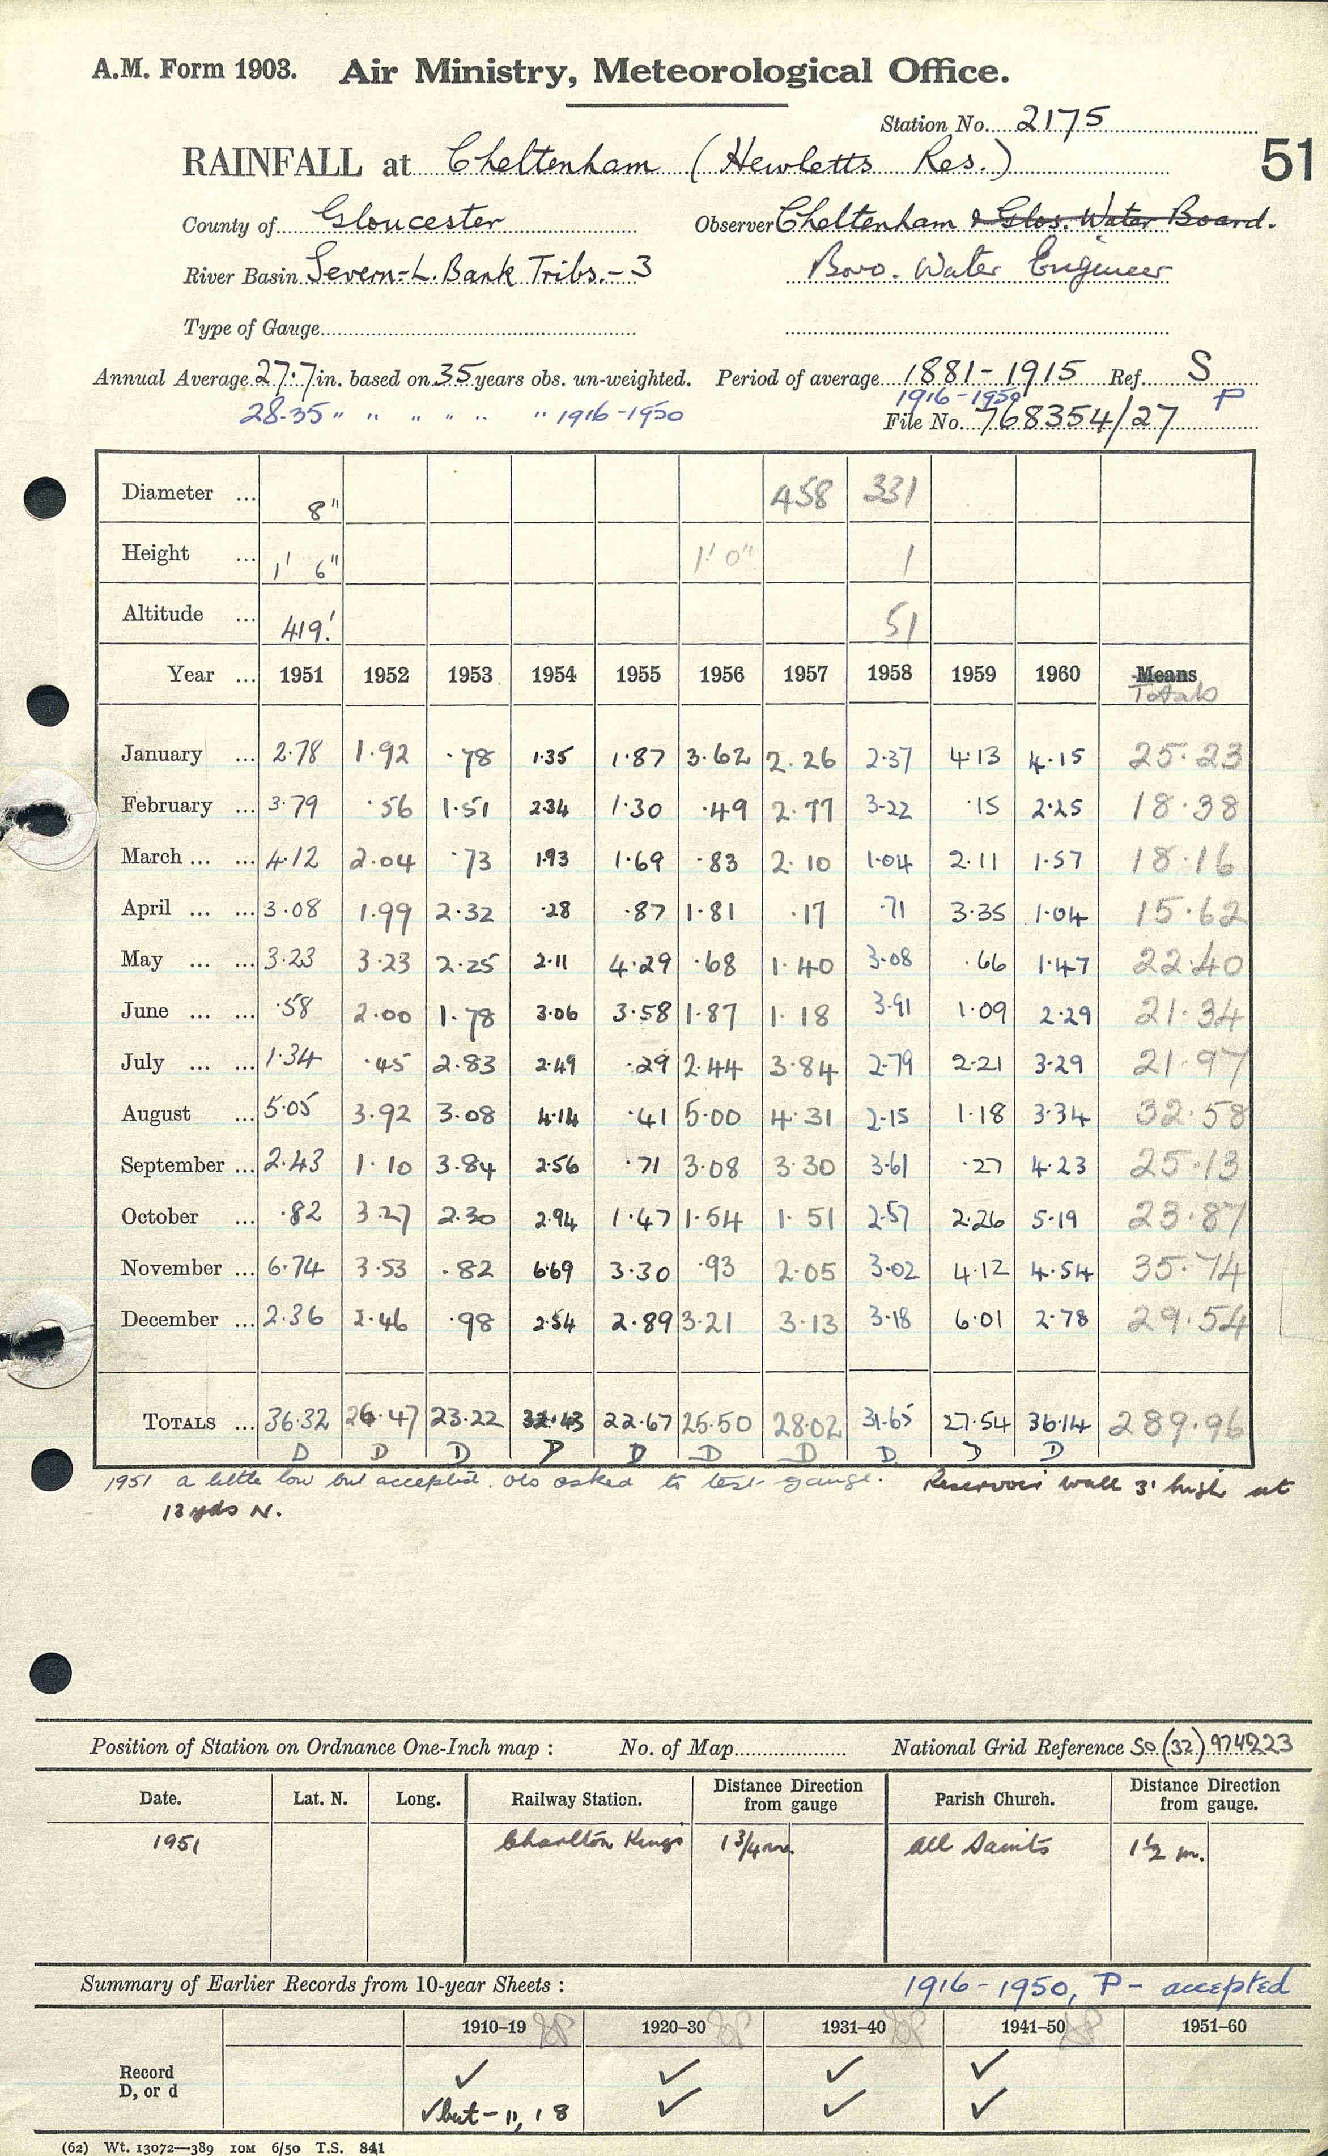 A.M. Form 1903. Air Ministry, Meteorological Office.
Station No. 2175
RAINFALL at Cheltenham (Hewletts Res.) 51
County of Gloucester Observer Cheltenham & Glos. Water Board.
River Basin Severn-L. Bank Tribs.-3 Boro. Water Engineer
Type of Gauge
Annual Average 27.7 in. based on 35 years obs. un-weighted. Period of average 1881-1915 Ref. S
28.35 " " " " " 1916-1950 1916-1950 P
File No. 768354/27
Diameter ... 8" 458 331
Height ... 1' 6" 1' 0" 1
Altitude ... 419' 51
Year ... 1951 1952 1953 1954 1955 1956 1957 1958 1959 1960 Means
Totals
January ... 2.78 1.92 .78 1.35 1.87 3.62 2.26 2.37 4.13 4.15 25.23
February ... 3.79 .56 1.51 2.34 1.30 .49 2.77 3.22 .15 2.25 18.38
March ... ... 4.12 2.04 .73 1.93 1.69 .83 2.10 1.04 2.11 1.57 18.16
April ... ... 3.08 1.99 2.32 .28 .87 1.81 .17 .71 3.35 1.04 15.62
May ... ... 3.23 3.23 2.25 2.11 4.29 .68 1.40 3.08 .66 1.47 22.40
June ... ... .58 2.00 1.78 3.06 3.58 1.87 1.18 3.91 1.09 2.29 21.34
July ... ... 1.34 .45 2.83 2.49 .29 2.44 3.84 2.79 2.21 3.29 21.97
August ... 5.05 3.92 3.08 4.14 .41 5.00 4.31 2.15 1.18 3.34 32.58
September ... 2.43 1.10 3.84 2.56 .71 3.08 3.30 3.61 .27 4.23 25.13
October ... .82 3.27 2.30 2.94 1.47 1.54 1.51 2.57 2.26 5.19 23.87
November ... 6.74 3.53 .82 6.69 3.30 .93 2.05 3.02 4.12 4.54 35.74
December ... 2.36 2.46 .98 2.54 2.89 3.21 3.13 3.18 6.01 2.78 29.54
TOTALS ... 36.32 26.47 23.22 32.43 22.67 25.50 28.02 31.65 27.54 36.14 289.96
D D D D D D D D D D
1951 a little low but accepted. Obs asked to test gauge. Reservoir wall 3' high at
13 yds N.
Position of Station on Ordnance One-Inch map : No. of Map National Grid Reference SO (32) 974223
Date. Lat. N. Long. Railway Station. Distance Direction from gauge Parish Church. Distance Direction from gauge.
1951 Charlton Kings 1 3/4 m. All Saints 1 1/2 m.
Summary of Earlier Records from 10-year Sheets : 1916-1950, P- accepted
1910-19 1920-30 1931-40 1941-50 1951-60
Record ✓ ✓ ✓ ✓
D, or d ✓ but - 11, 18 ✓ ✓ ✓
(62) Wt. 13072—389 10M 6/50 T.S. 841